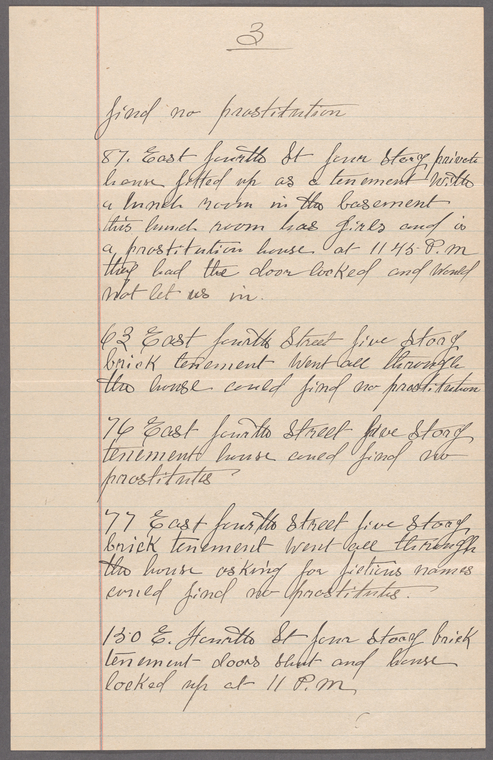 3
find no prostitution
87. East fourth St four story private
house fitted up as a tenement with
a lunch room in the basement
this lunch room has girls and is
a prostitution house at 11 45 P.m
they had the door locked and would
not let us in.
63 East fourth Street five story
brick tenement went all through
the house could find no prostitution
76 East fourth Street five story
tenement house coued find no
prostitutes
77 East fourth Street five story
brick tenement went all through
the house asking for fictius names
coued find no prostitutes.
150 E. Fourth St four story brick
tenement doors shut and house
locked up at 11 P.m